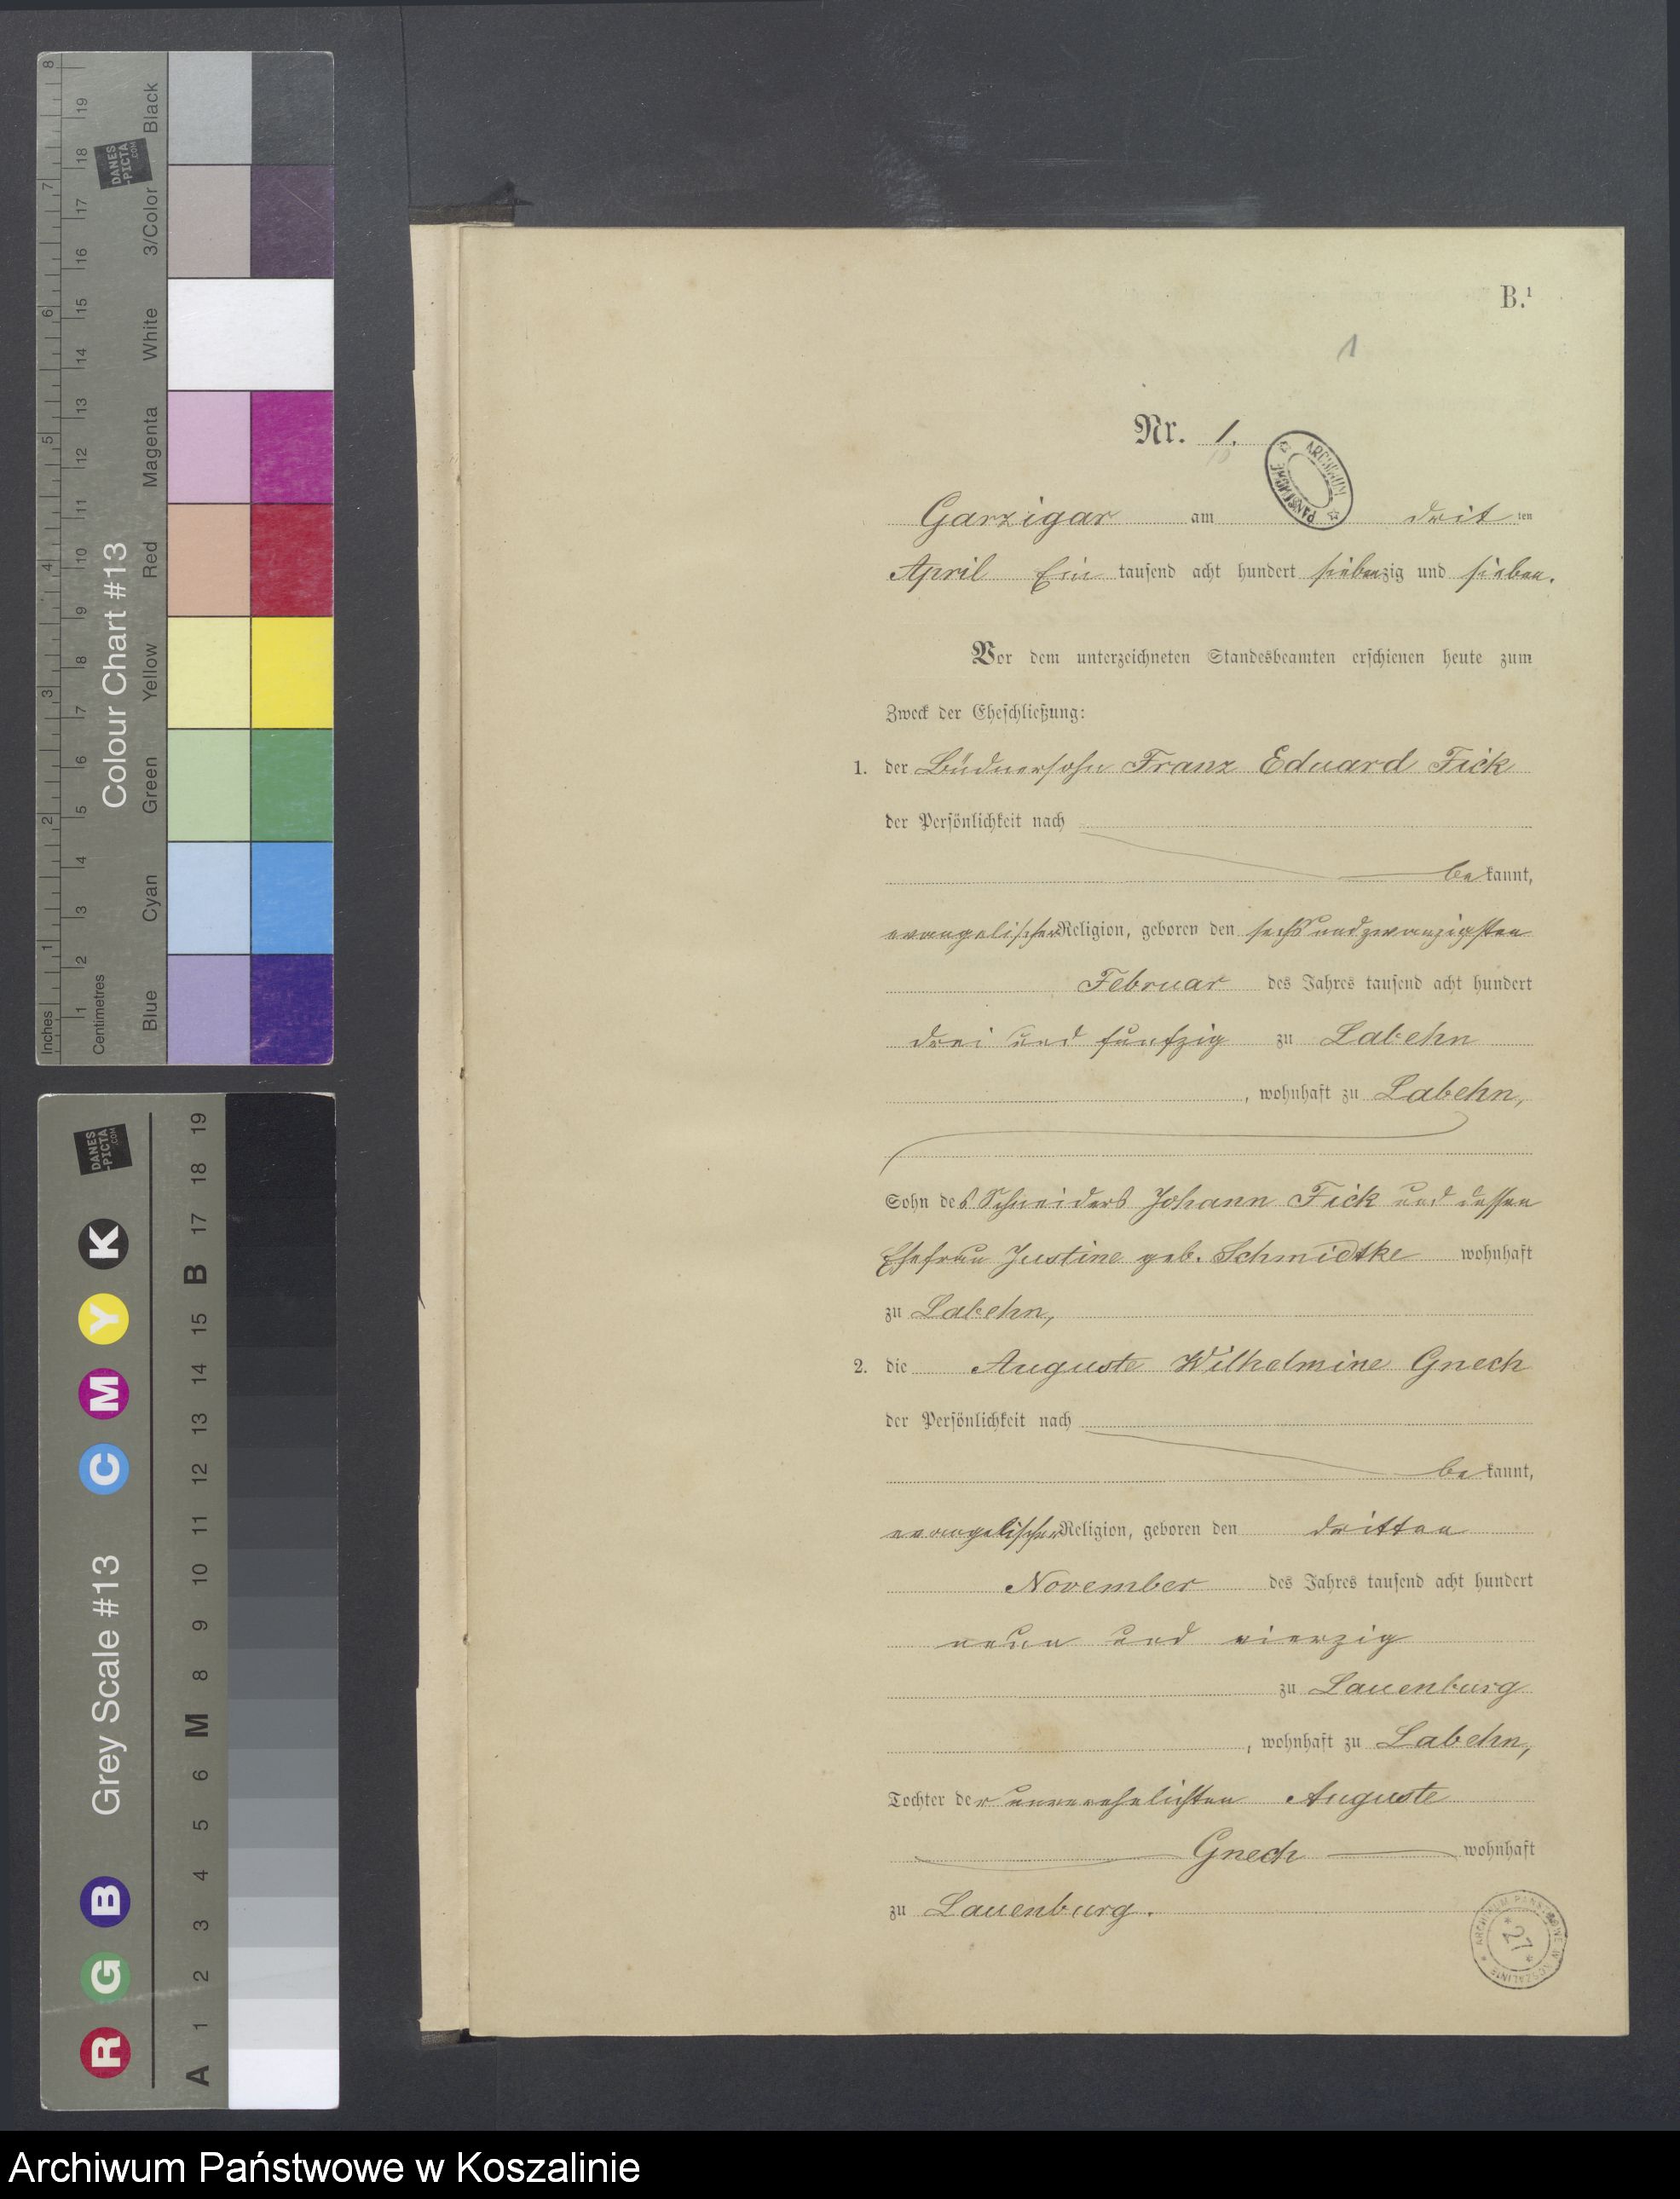 8
19
Black
18
DANES
-PICTA
.COM
7
17
3/Color
16
6
15
White
14
13
5
12
Magenta
11
4
10
Red
9
Colour Chart #13
8
3
7
Yellow
6
5
Green
2
4
Cyan
3
1
2
1
Inches
Centimetres
Blue
DANES
-PICTA
.COM
19
18
17
B
15
14
13
12
11
10
9
8
M
6
5
4
3
2
1
A
K
Y
M
C
Grey Scale #13
B
G
R
B.¹
1
Nr. 1.
ARCHIWUM PAŃSTWOWE
Garzigar am drit ten
April Ein tausend acht hundert siebenzig und sieben.
Vor dem unterzeichneten Standesbeamten erschienen heute zum
Zweck der Eheschließung:
1. der Büdnersohn Franz Eduard Fick
der Persönlichkeit nach
bekannt,
evangelischer Religion, geboren den sechs und zwanzigsten
Februar des Jahres tausend acht hundert
drei und funfzig zu Labehn
, wohnhaft zu Labehn,
Sohn des Schneiders Johann Fick und dessen
Ehefrau Justine geb. Schmidtke wohnhaft
zu Labehn,
2. die Auguste Wilhelmine Gnech
der Persönlichkeit nach
bekannt,
evangelischer Religion, geboren den dritten
November des Jahres tausend acht hundert
neun und vierzig
zu Lauenburg
, wohnhaft zu Labehn,
Tochter der unverehelichten Auguste
Gnech wohnhaft
zu Lauenburg.
ARCHIWUM PAŃSTWOWE W KOSZALINIE
27
Archiwum Państwowe w Koszalinie